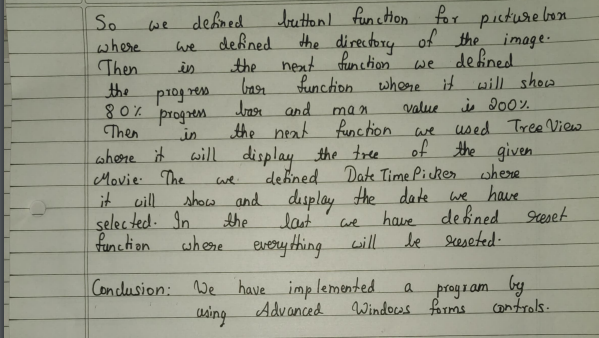 So we defined button1 function for picturebox
where we defined the directory of the image.
Then in the next function we defined
the progress bar function where it will show
80% progress bar and max value is 200%.
Then in the next function we used TreeView
where it will display the tree of the given
Movie. The we defined DateTimePicker where
it will show and display the date we have
selected. In the last we have defined reset
function where everything will be reseted.
Conclusion: We have implemented a program by
using Advanced Windows forms controls.